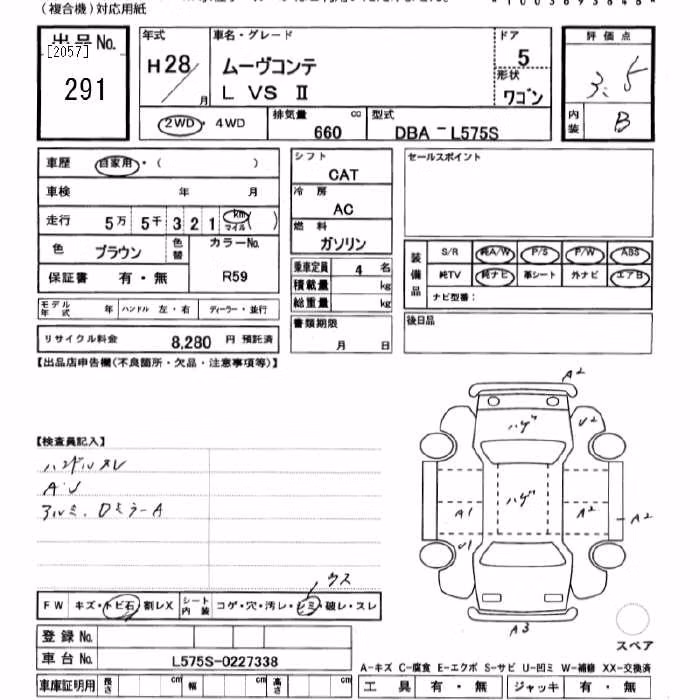 (複合機)対応用紙
出品No.
[2057]
291
年式
H28/月
車名・グレード
ムーヴコンテ
L VS Ⅱ
ドア
5
形状
ワゴン
評価点
3.5
内装
B
2WD・4WD
排気量 660 cc
型式 DBA-L575S
車歴 自家用・( )
車検 年 月
走行 5万 5千 3 2 1 km マイル( )
色 ブラウン 色替
カラーNo. R59
保証書 有・無
モデル年式 年 ハンドル 左・右 ディーラー・並行
リサイクル料金 8,280 円 預託済
シフト
CAT
冷房
AC
燃料
ガソリン
乗車定員 4 名
積載量 kg
総重量 kg
書類期限
月 日
セールスポイント
装備品
S/R 純A/W P/S P/W ABS
純TV 純ナビ 革シート 外ナビ エアB
ナビ型番:
後日品
【出品店申告欄(不良箇所・欠品・注意事項等)】
【検査員記入】
ハンドルスレ
A・U
アルミ、Dミラ-A
A2
ハゲ
U2
ハゲ
A1
A2
A2
U1
A3
スペア
ウス
FW キズ・トビ石・割レX
シート内装 コゲ・穴・汚レ・シミ・破レ・スレ
登録No.
車台No. L575S-0227338
A-キズ C-腐食 E-エクボ S-サビ U-凹ミ W-補修 XX-交換済
車庫証明用 長さ cm 幅 cm 高さ cm
工具 有・無 ジャッキ 有・無